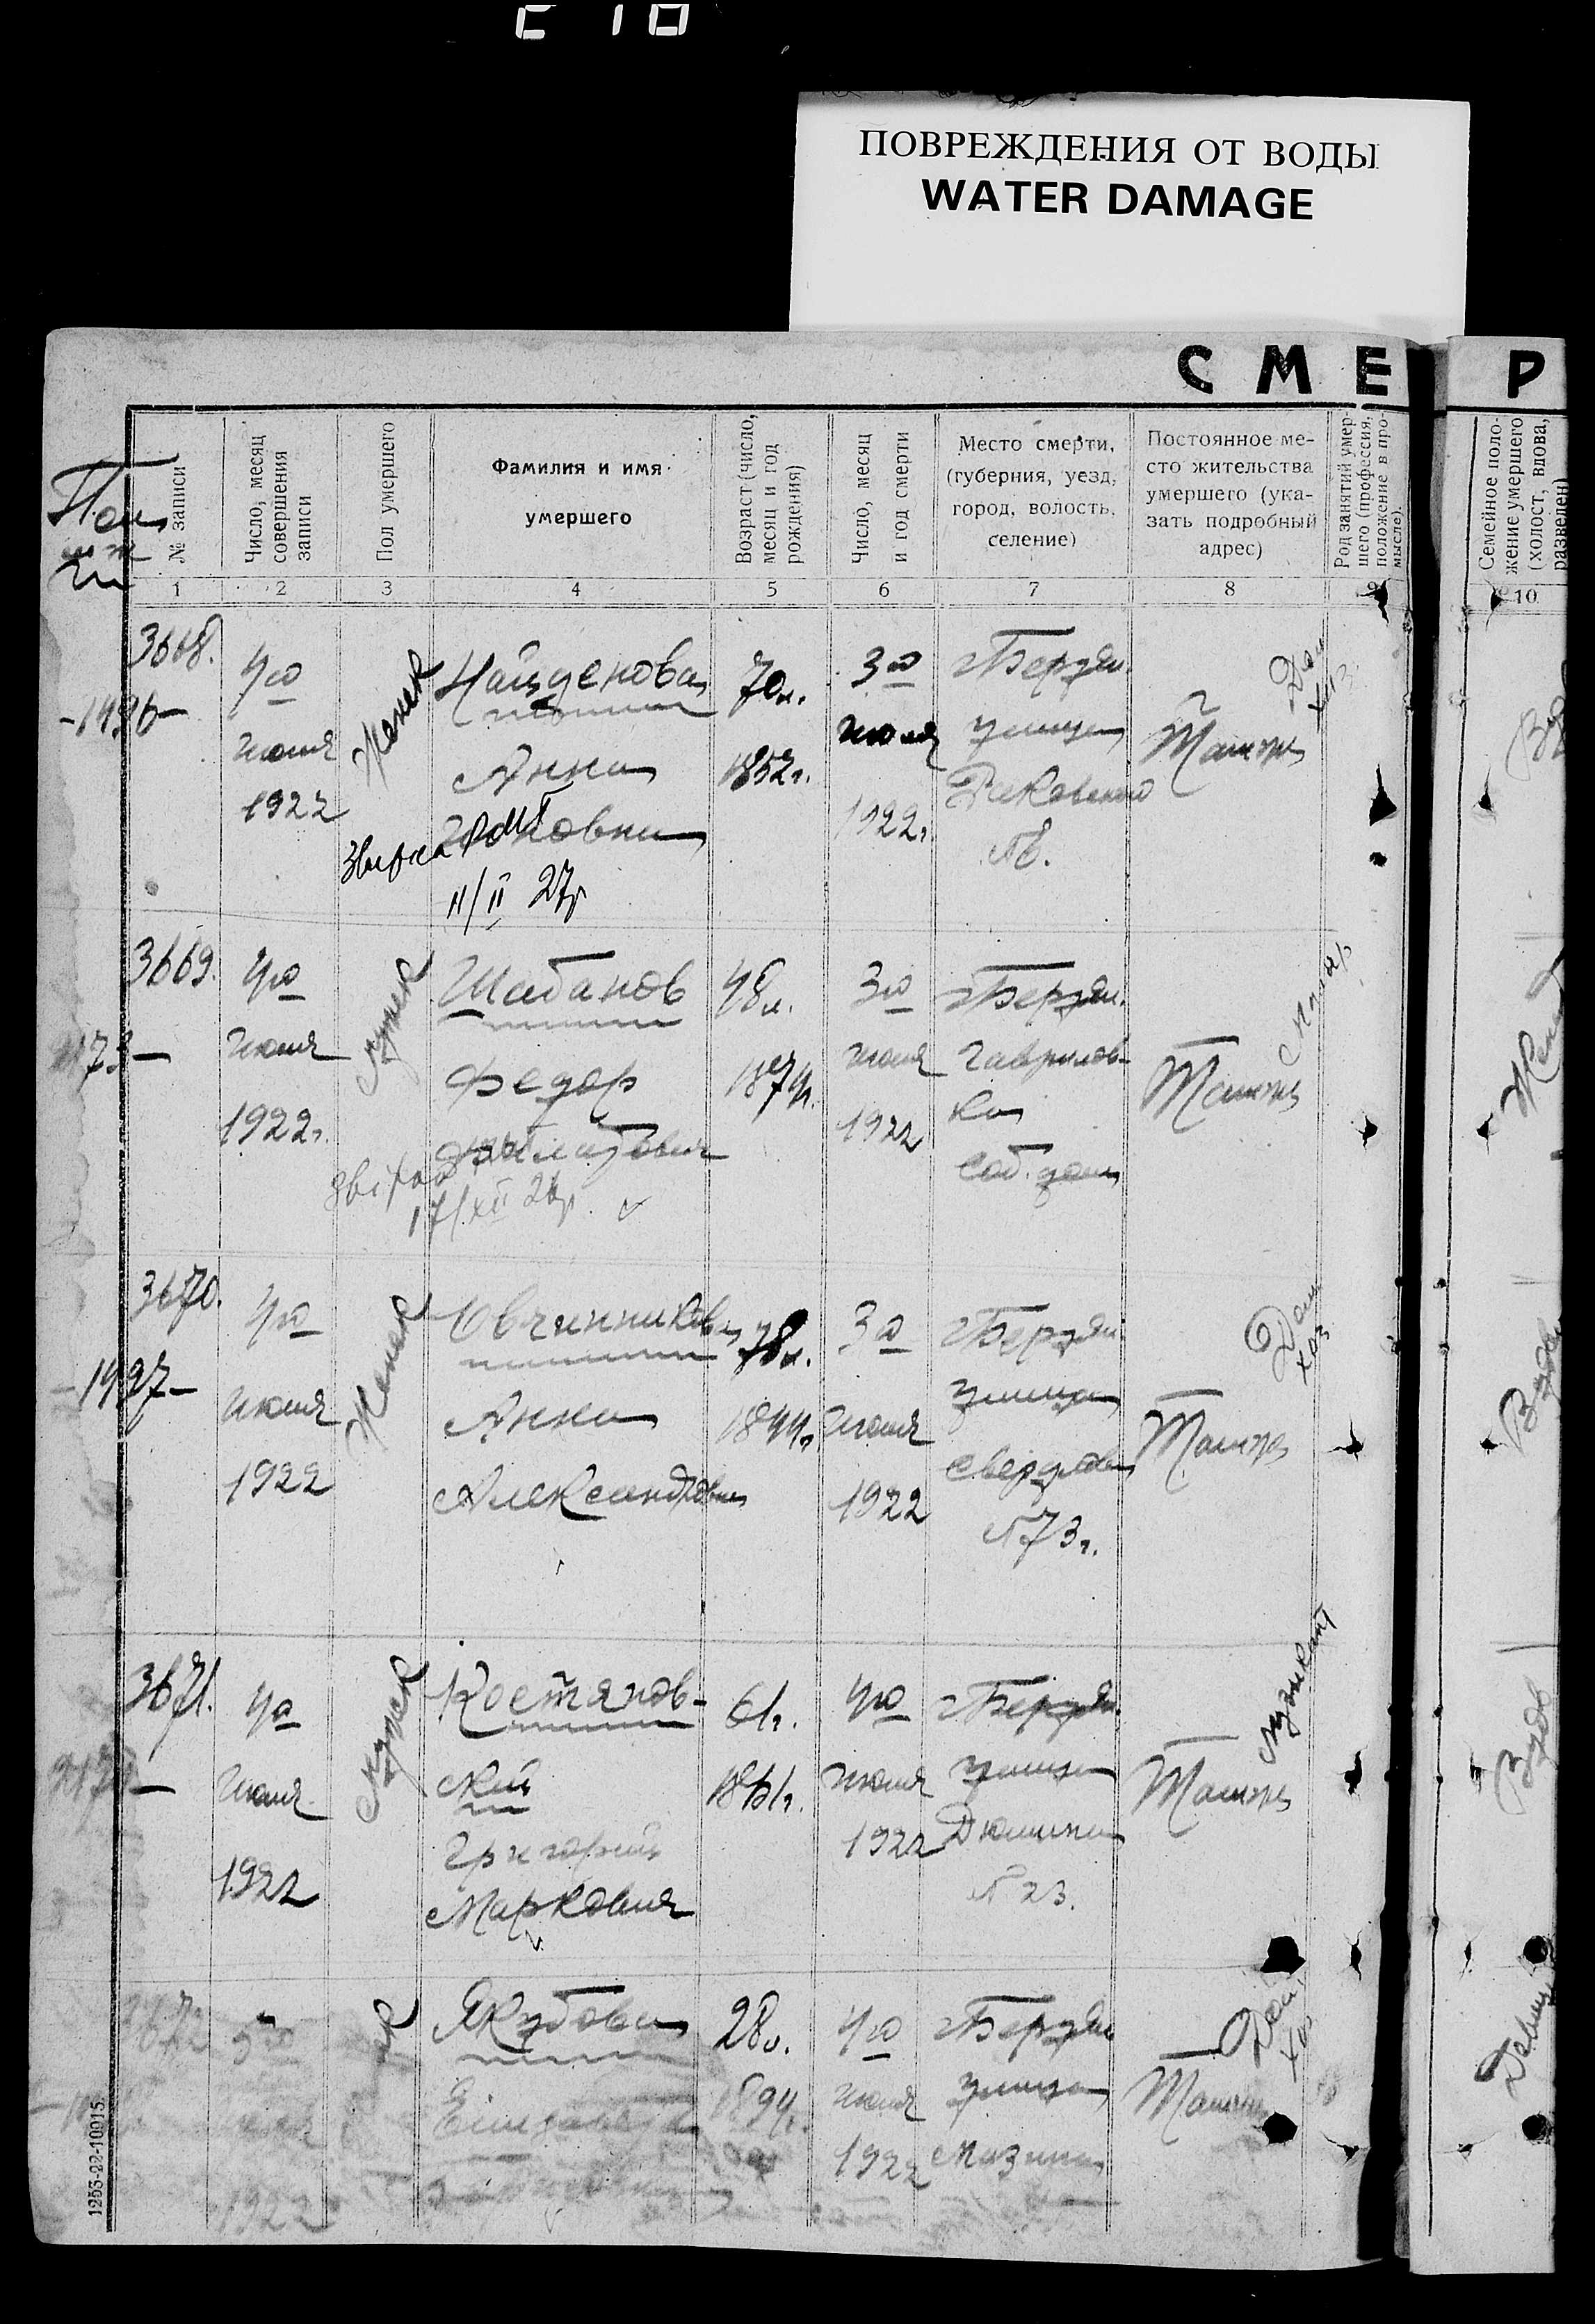 ПОВРЕЖДЕНИЯ ОТ ВОДЫ
WATER DAMAGE
СМЕ Р
№ записи
Число, месяц
совершения
записи
Пол умершего
Фамилия и имя
умершего
Возраст (число,
месяц и год
рождения)
Число, месяц
и год смерти
Место смерти,
(губерния, уезд,
город, волость,
селение)
Постоянное ме-
сто жительства
умершего (ука-
зать подробный
адрес)
Род занятий умер-
шего (профессия,
положение в про-
мысле).
Семейное поло-
жение умершего
(холост, вдова,
разведен)
1 2 3 4 5 6 7 8 9 10
3668.
-1496-
4го
июля
1922
Женск
Найденова
Анна
II/II 27р
70л.
1852г.
3го
июля
1922г.
г Бердян.
улица
№8.
Там же
Дом
хоз
3669.
4го
июля
1922г.
Мужск
Шабанов
Федор
17/XII 26р.
48л.
1874г.
3го
июля
1922
г Бердян.
Гаврилов-
ка
соб. дом
Там же
Маляр
3670.
-1497-
4го
июля
1922
Женск
Овчинникова
Анна
Александровна
78л.
1844г.
3го
июля
1922
г Бердян
улица
Свердлова
№73г.
Там же
Дом
хоз
Вдова
3671.
4го
июля
1922
Мужск
Костянов-
ский
Григорий
Маркович
61г.
1861г.
4го
июля
1922
г Бердян.
улица
Дюмина
№23.
Там же
Музыкант
Вдов
1922
Якубова
28л.
1894г.
4го
июля
1922
г Бердян
улица
Мазина
Там же
Дом
хоз
Девиц
1253-22-10015.